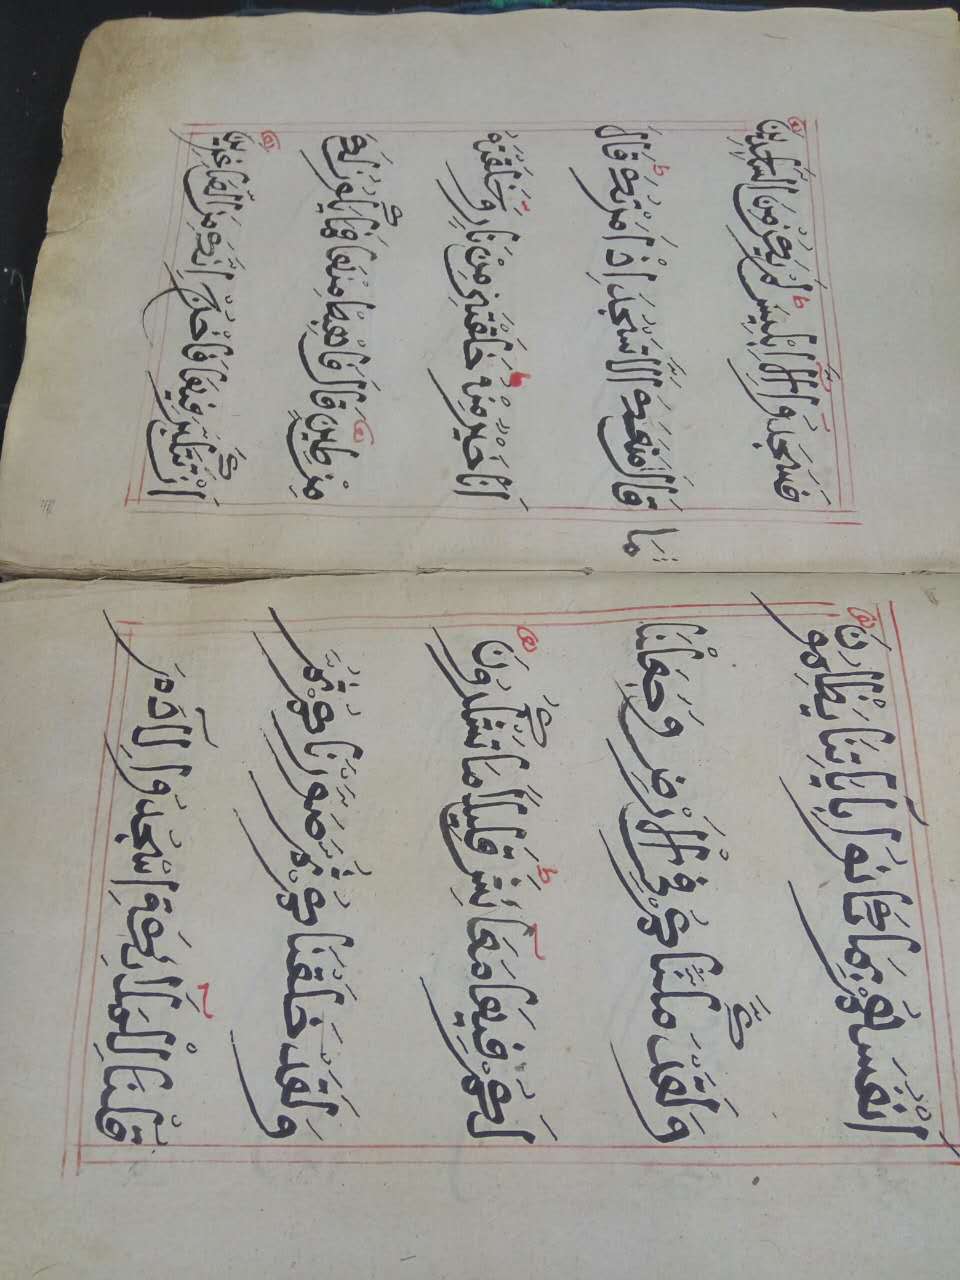 اَنْفُسَهُمْ بِمَا كَانُوْا بِاٰيَاتِنَا يَظْلِمُوْنَ
وَلَقَدْ مَكَّنَّاكُمْ فِي الْاَرْضِ وَجَعَلْنَا
لَكُمْ فِيْهَا مَعَايِشَ ط قَلِيْلًا مَا تَشْكُرُوْنَ
وَلَقَدْ خَلَقْنَاكُمْ ثُمَّ صَوَّرْنَاكُمْ ثُمَّ
قُلْنَا لِلْمَلَائِكَةِ اسْجُدُوْا لِاٰدَمَ
فَسَجَدُوْا اِلَّا اِبْلِيْسَ ط لَمْ يَكُنْ مِنَ السَّاجِدِيْنَ
قَالَ مَا مَنَعَكَ اَلَّا تَسْجُدَ اِذْ اَمَرْتُكَ ط قَالَ
اَنَا خَيْرٌ مِنْهُ ط خَلَقْتَنِيْ مِنْ نَارٍ وَخَلَقْتَهُ
مِنْ طِيْنٍ قَالَ فَاهْبِطْ مِنْهَا فَمَا يَكُوْنُ لَكَ
اَنْ تَتَكَبَّرَ فِيْهَا فَاخْرُجْ اِنَّكَ مِنَ الصَّاغِرِيْنَ